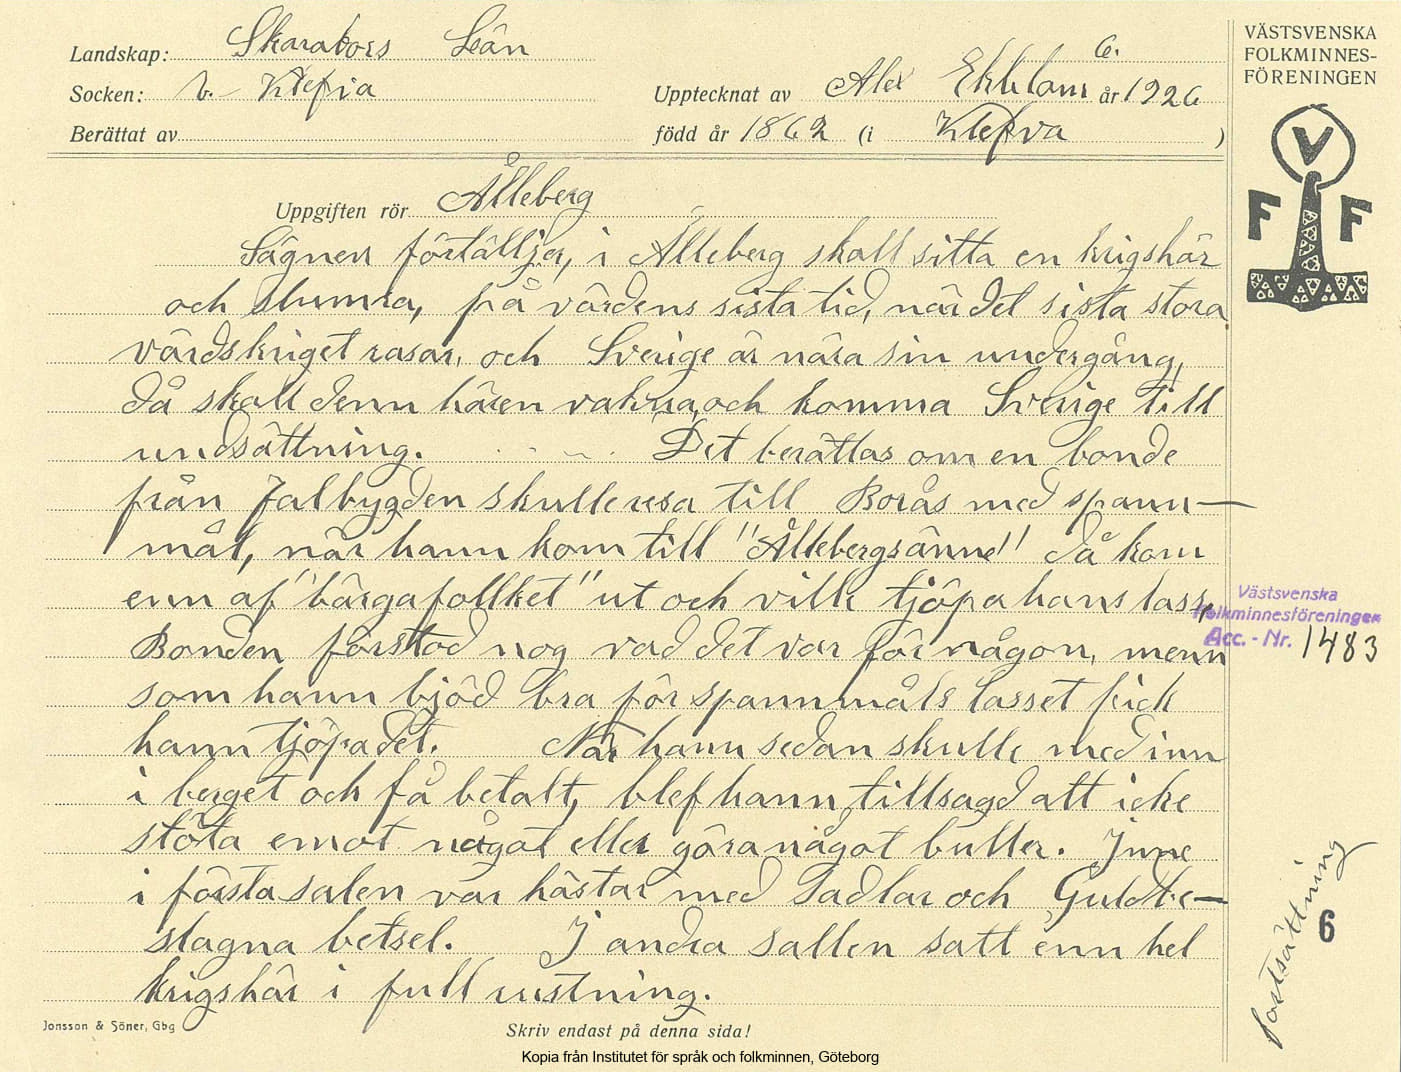 Landskap: Skarabors Leän
Socken: V. Klefva
Berättat av
Upptecknat av Alex Ekblom år 1926
6.
född år 1862 (i Klefva )
VÄSTSVENSKA
FOLKMINNES-
FÖRENINGEN
V
F F
Uppgiften rör Ålleberg
Sägnen förtälljer, i Ålleberg skall sitta en krigshär
och slumra, på värdens sista tid, när det sista stora
värdskriget rasar, och Sverige är nära sin undergång,
då skall denn hären vakna, och komma Sverige till
undsättning. Det berättas om en bonde
från Falbygden skulle resa till Borås med spann-
mål, när hann kom till "Ållebergsänne" då kom
enn af "bärgafollket" ut och ville tjöpa hans lass,
Bonden förstod nog vad det var för någon, menn
som hann bjöd bra för spannmåls lasset fick
hann tjöpa det. När hann sedan skulle med inn
i berget och få betalt, blef hann tillsagd att icke
stöta emot något eller göra något buller. Inne
i första salen var hästar med sadlar och Guldbe-
slagna betsel. I andra sallen satt enn hel
krigshär i full rustning.
Västsvenska
Folkminnesföreningen
Acc.-Nr. 1483
fortsättning
6
Jonsson & Söner, Gbg
Skriv endast på denna sida!
Kopia från Institutet för språk och folkminnen, Göteborg